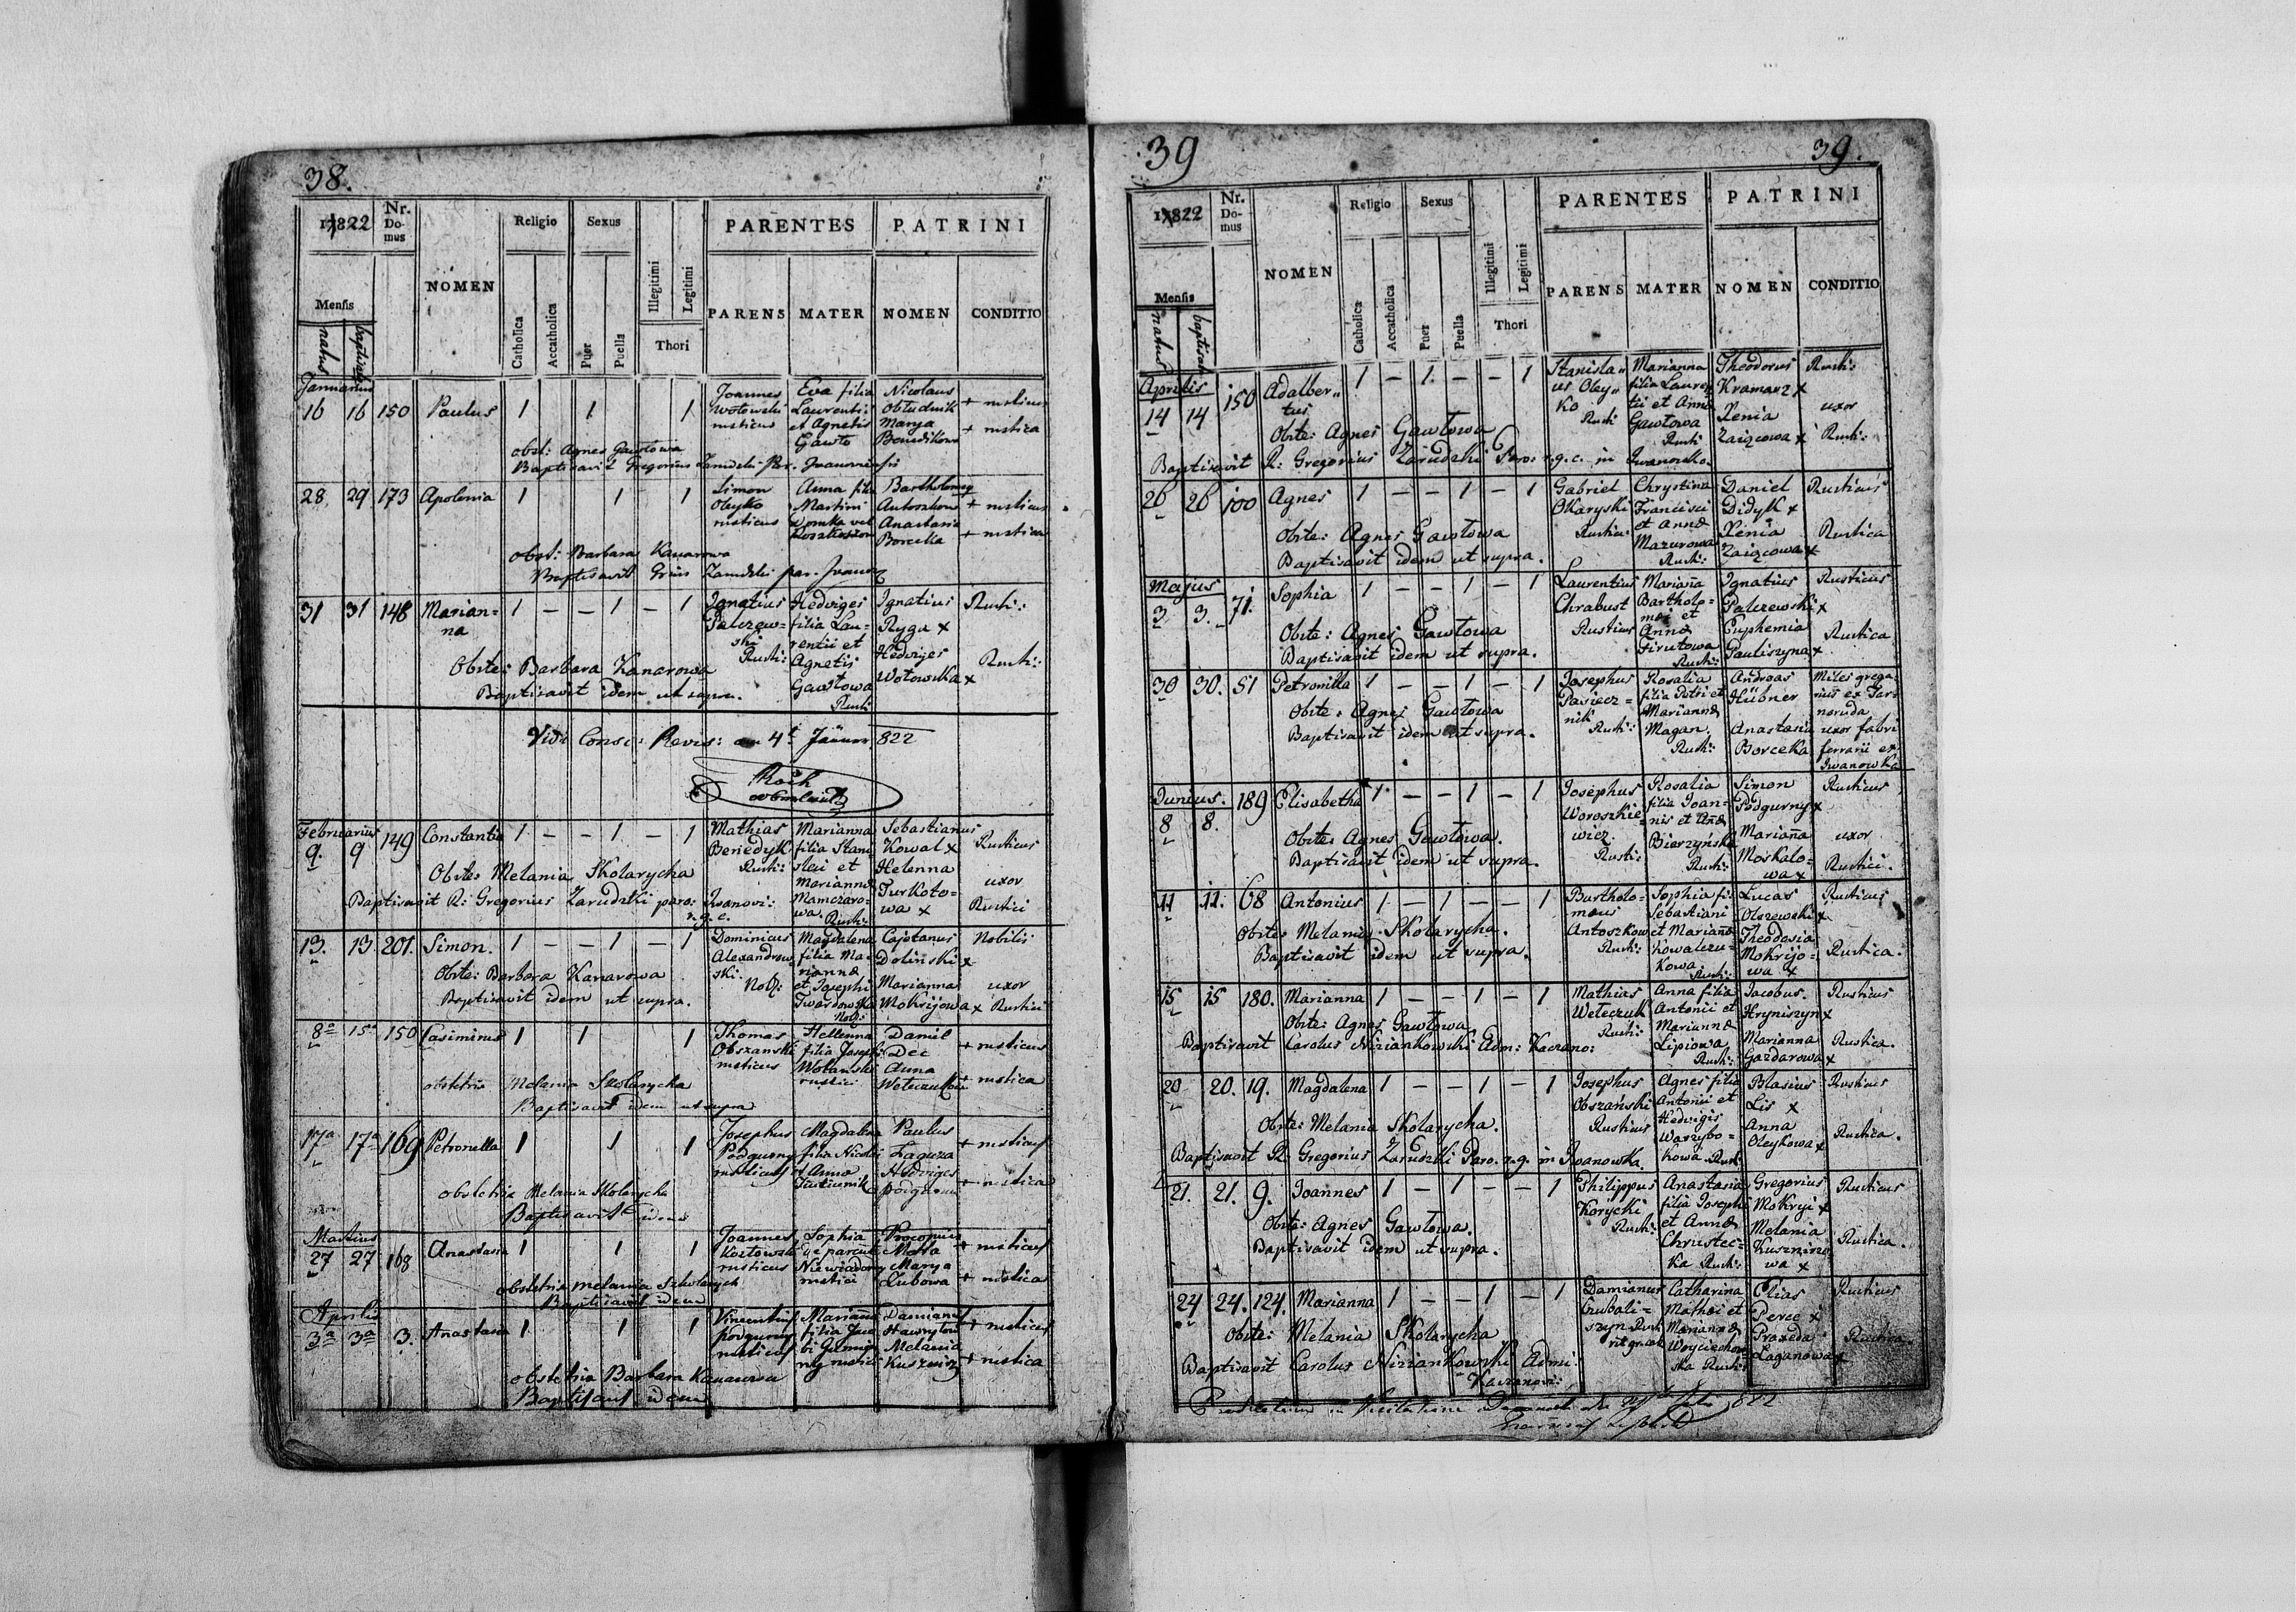 38.
17822
Nr. Do- mus
NOMEN
Religio
Sexus
PARENTES
PATRINI
Mensis
natus
baptisatus
Catholica
Accatholica
Puer
Puella
Illegitimi
Legitimi
Thori
PARENS
MATER
NOMEN
CONDITIO
Januarius
16 16 150 Paulus 1 1 1
Joannes Wołowski rusticus
Eva filia Laurentii et Agnetis Gawło
Nicolaus
Marya
+ rusticus
+ rustica
obst: Agnes Gawłowa
Baptisavit Gregorius Zarudzki Par.
28 29 173 Apolonia 1 1 1
Simon Oleyko rusticus
Anna filia Martini
Bartholomeus
Anastasia Borecka
+ rusticus
+ rustica
obst: Barbara Kanarowa
Baptisavit Zarudzki par.
31 31 148 Marian- na 1 – – 1 – 1
Ignatius Palczew- ski Rusti:
Hedviges filia Lau- rentii et Agnetis Gawłowa Rusti:
Ignatius Ryga x
Hedviges Wołowska x
Rusti:
Rusti:
Obste: Barbara Kanarowa
Baptisavit idem ut supra.
Vidi Consc: Revis: 4t Jänner 822
Februarius
9. 9 149 Constantia 1 – – 1 – 1
Mathias Benedyk Rusti:
Marianna filia Stani- slai et Mariannæ Mamczaro- wa. Rusti:
Sebastianus Kowal x
Helenna Turkoto- wa x
Rusticus
uxor
Rustici
Obste: Melania Skolarycha
Baptisavit R: Gregorius Zarudzki paro: Iwanovi: r. g. c.
13. 13 201. Simon. 1 – – 1 – 1
Dominicus Alexandrow- ski. Nob:
Magdalena filia Ma- riannæ et Josephi Twardowska Nob:
Cajetanus Doliński x
Marianna Mokrijowa x
Nobilis
uxor
Rustici
Obste: Barbara Kanarowa
Baptisavit idem ut supra.
8a 15a 150 Casimirus 1 1 1
Thomas Obszanski rusticus
Hellenna filia Josephi Wołanski rustici
Daniel Dec
Anna
+ rusticus
+ rustica
obstetrix Melania Szkolarycha
Baptisavit idem ut supra
17a 17a 169 Petronella 1 1 1
Josephus Podgurny rusticus
Magdalena filia Nicolai et Anna
Paulus Laguza
Hedviges Podgurna
+ rusticus
+ rustica
obstetrix Melania Skolarycha
Baptisavit idem
Martius
27 27 168 Anastasia 1 1 1
Joannes Kozłowski rusticus
Sophia de parent Niewiadomy rustici
Procopius
Marya Zubowa
+ rusticus
+ rustica
obstetrix Melania Szkolarych
Baptisavit idem
Aprilis
3a 3a 3. Anastasia 1 1 1
Vincentius Podgurny rusticus
Marianna filia Jaco- bi rustici
Damianus
Melania
+ rusticus
+ rustica
obstetrix Barbara Kanarowa
Baptisavit idem
39
39.
17822
Nr. Do- mus
NOMEN
Religio
Sexus
PARENTES
PATRINI
Mensis
natus
baptisatus
Catholica
Accatholica
Puer
Puella
Illegitimi
Legitimi
Thori
PARENS
MATER
NOMEN
CONDITIO
Aprilis
14 14 150 Adalber- tus 1 – 1. – – 1
Stanisla- us Oley- ko Rusti
Marianna filia Lauren- tii et Annæ Gawłowa Rusti
Theodorus Kramarz x
Xenia Zaizcowa x
Rusti:
uxor
Rusti:
Obste: Agnes Gawłowa
Baptisavit R: Gregorius Zarudzki Paro: r. g. c. in Iwanowka.
26 26 100 Agnes 1 – – 1 – 1
Gabriel Okaryski Rusticus
Chrystina Francisci et Annæ Mazurowa Rusti:
Daniel Didyk x
Xenia Zaizcowa x
Rusticus
Rustica
Obste: Agnes Gawłowa
Baptisavit idem ut supra.
Majus
3 3. 71. Sophia 1 – – 1 – 1
Laurentius Chrabust Rusticus
Marianna Bartholo- mæi et Annæ Firutowa Rusti:
Ignatius Palczewski x
Euphemia Pauliszyna x
Rusticus
Rustica
Obste: Agnes Gawłowa
Baptisavit idem ut supra.
30 30. 51 Petronilla 1 – – 1 – 1
Josephus Pasiecz- nik Rusti:
Rosalia filia Petri et Mariannæ Magan. Rusti:
Andreas Hübner
Anastasia Borecka
Miles grega- rius ex
uxor fabri ferrarii ex Iwanowka
Obste: Agnes Gawłowa
Baptisavit idem ut supra.
Junius.
8 8. 189 Elisabetha 1 – – 1 – 1
Josephus Woroszkie- wicz. Rusti:
Rosalia filia Joan- nis et Annæ Bierzyńska Rusti:
Simon Podgurny x
Marianna Moskalo- wa x
Rusticus
uxor
Rustici.
Obste: Agnes Gawłowa.
Baptisavit idem ut supra.
11 11. 68 Antonius 1 – 1 – – 1
Bartholo- mæus Antoszkow Rusti:
Sophia fi: Sebastiani et Mariannæ Kowalczu- kowa Rusti:
Lucas Olszewski x
Theodosia Mokrijo- wa x
Rusticus
Rustica.
Obste: Melania Skolarycha.
Baptisavit idem ut supra.
15 15 180. Marianna 1 – – 1 – 1
Mathias Weleczuk Rusti:
Anna filia Antonii et Mariannæ Lipiowa Rusti:
Jacobus. Hryniszyn x
Marianna Gazdarowa x
Rusticus
Rustica.
Obste: Agnes Gawłowa
Baptisavit Carolus Niziankowski Adm: Kaczano:
20 20. 19. Magdalena 1 – – 1 – 1
Josephus Obszański Rusticus
Agnes filia Antonii et Hedvigis Warzybo- kowa Rusti:
Blasius Lis x
Anna Oleykowa x
Rusticus
Rustica.
Obste: Melania Skolarycha.
Baptisavit R: Gregorius Zarudzki Paro. r. g. in Iwanowka.
21. 21. 9. Joannes 1 – 1 – – 1
Philippus Korycki Rusti:
Anastasia filia Josephi et Annæ Chrustec- ka Rusti:
Gregorius Mokryi x
Melania Kuszniro- wa x
Rusticus
Rustica.
Obste: Agnes Gawłowa.
Baptisavit idem ut supra.
24 24. 124. Marianna 1 – – 1 – 1
Damianus szyn Rusti
Catharina Mathæi et Mariannæ Woyciechow- ska Rusti:
Elias Perec x
Praxeda Laganowa x
Rusticus
Rustica.
Obste: Melania Skolarycha
Baptisavit Carolus Niziankowski Admi: Kaczanovi:
in Visitatione 822